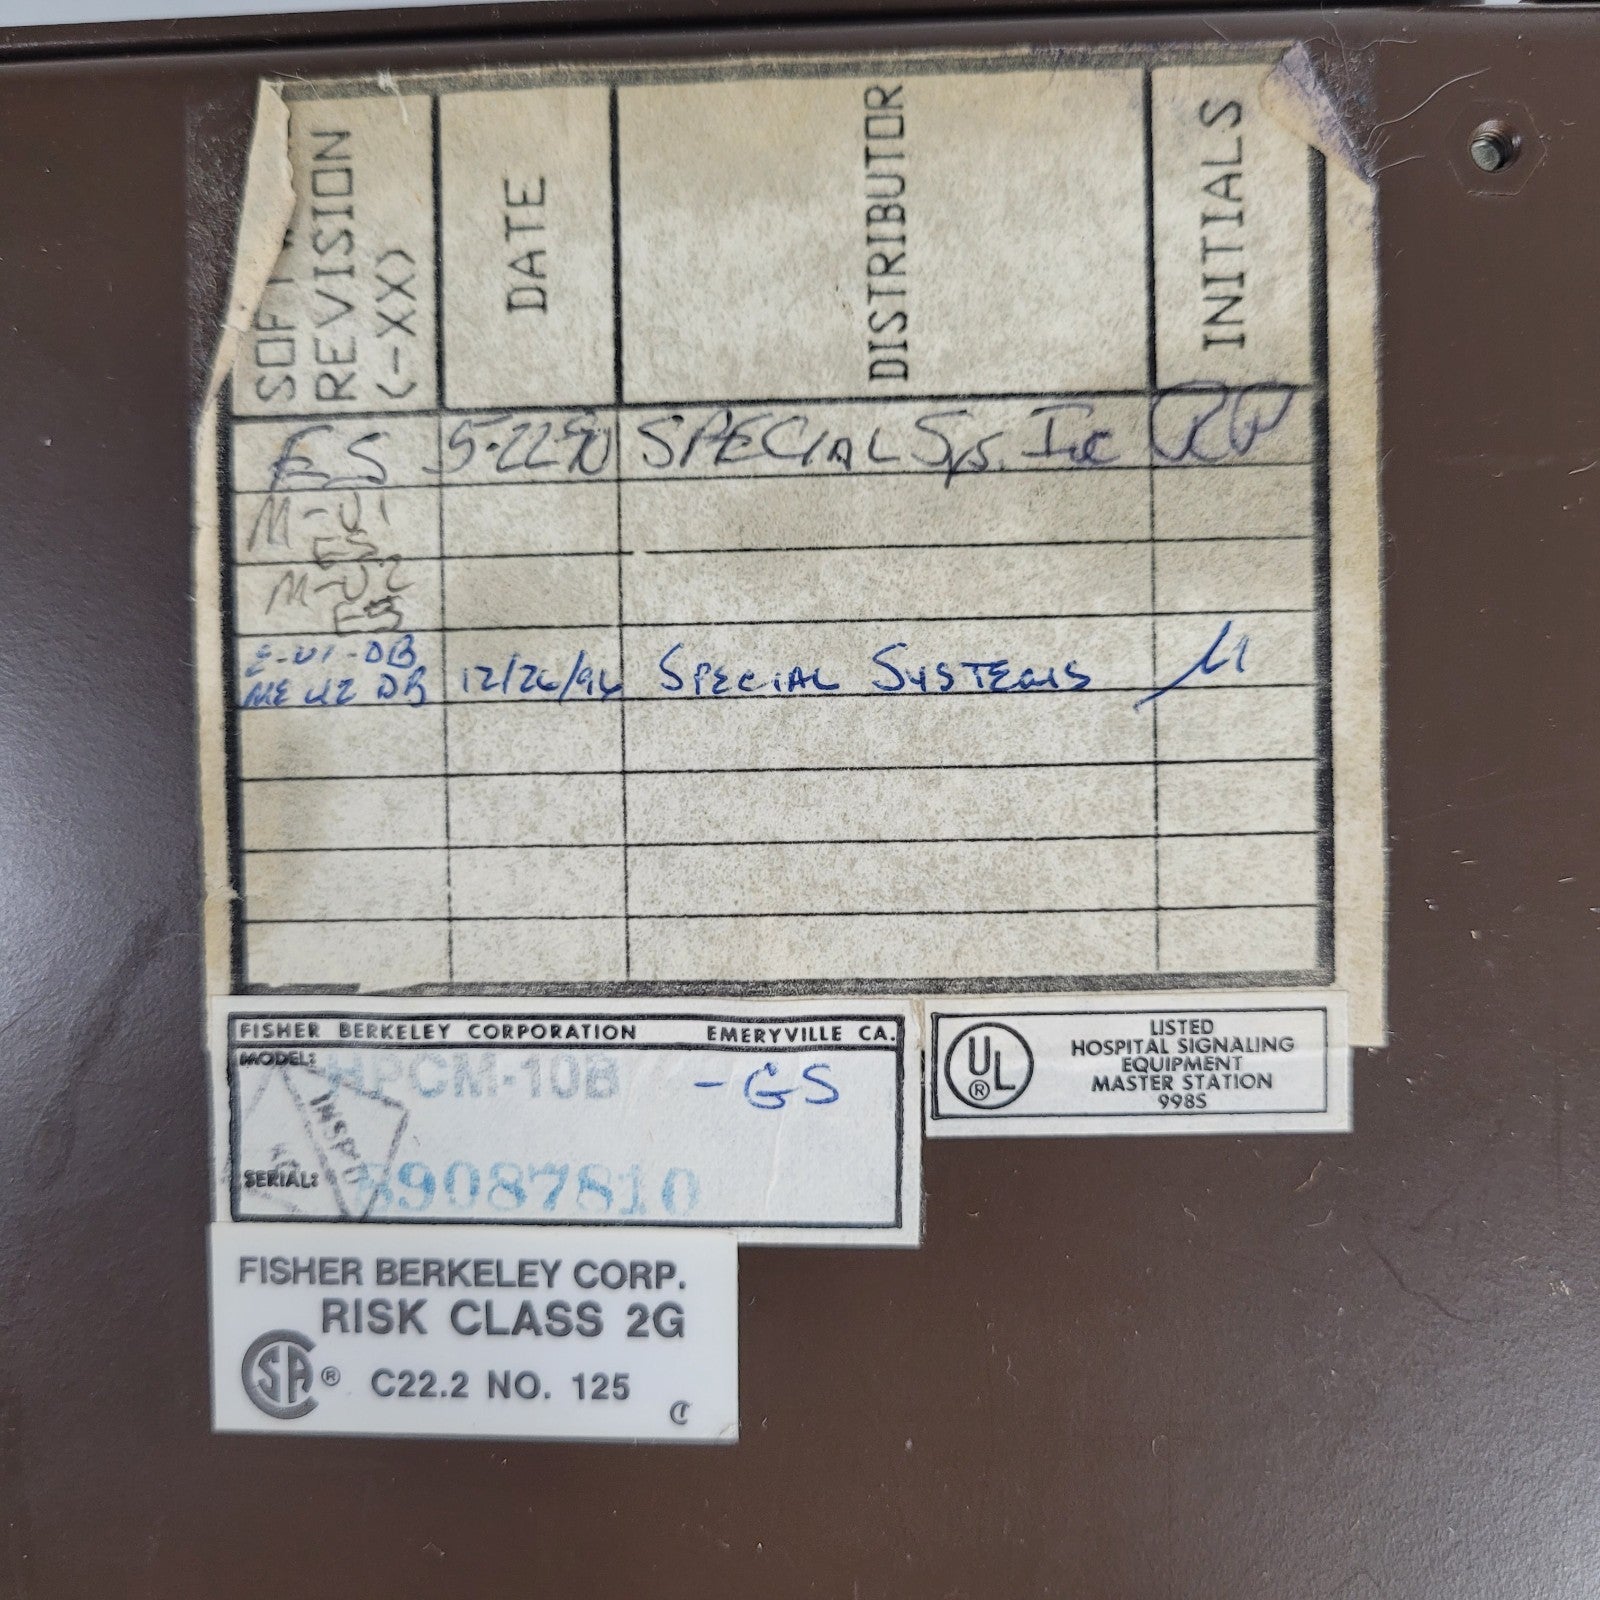 REVISION
(-XX)
DATE
DISTRIBUTOR
INITIALS
ES 5-22-90 SPECIAL Sys. Inc RW
M-U1
ES
M-U2
ES
E-U1-DB
ME U2 DB 12/26/96 SPECIAL SYSTEMS
FISHER BERKELEY CORPORATION EMERYVILLE CA.
MODEL: HPCM-10B -GS
INSP'D
SERIAL: 89087810
UL ® LISTED
HOSPITAL SIGNALING
EQUIPMENT
MASTER STATION
998S
FISHER BERKELEY CORP.
RISK CLASS 2G
CSA ® C22.2 NO. 125